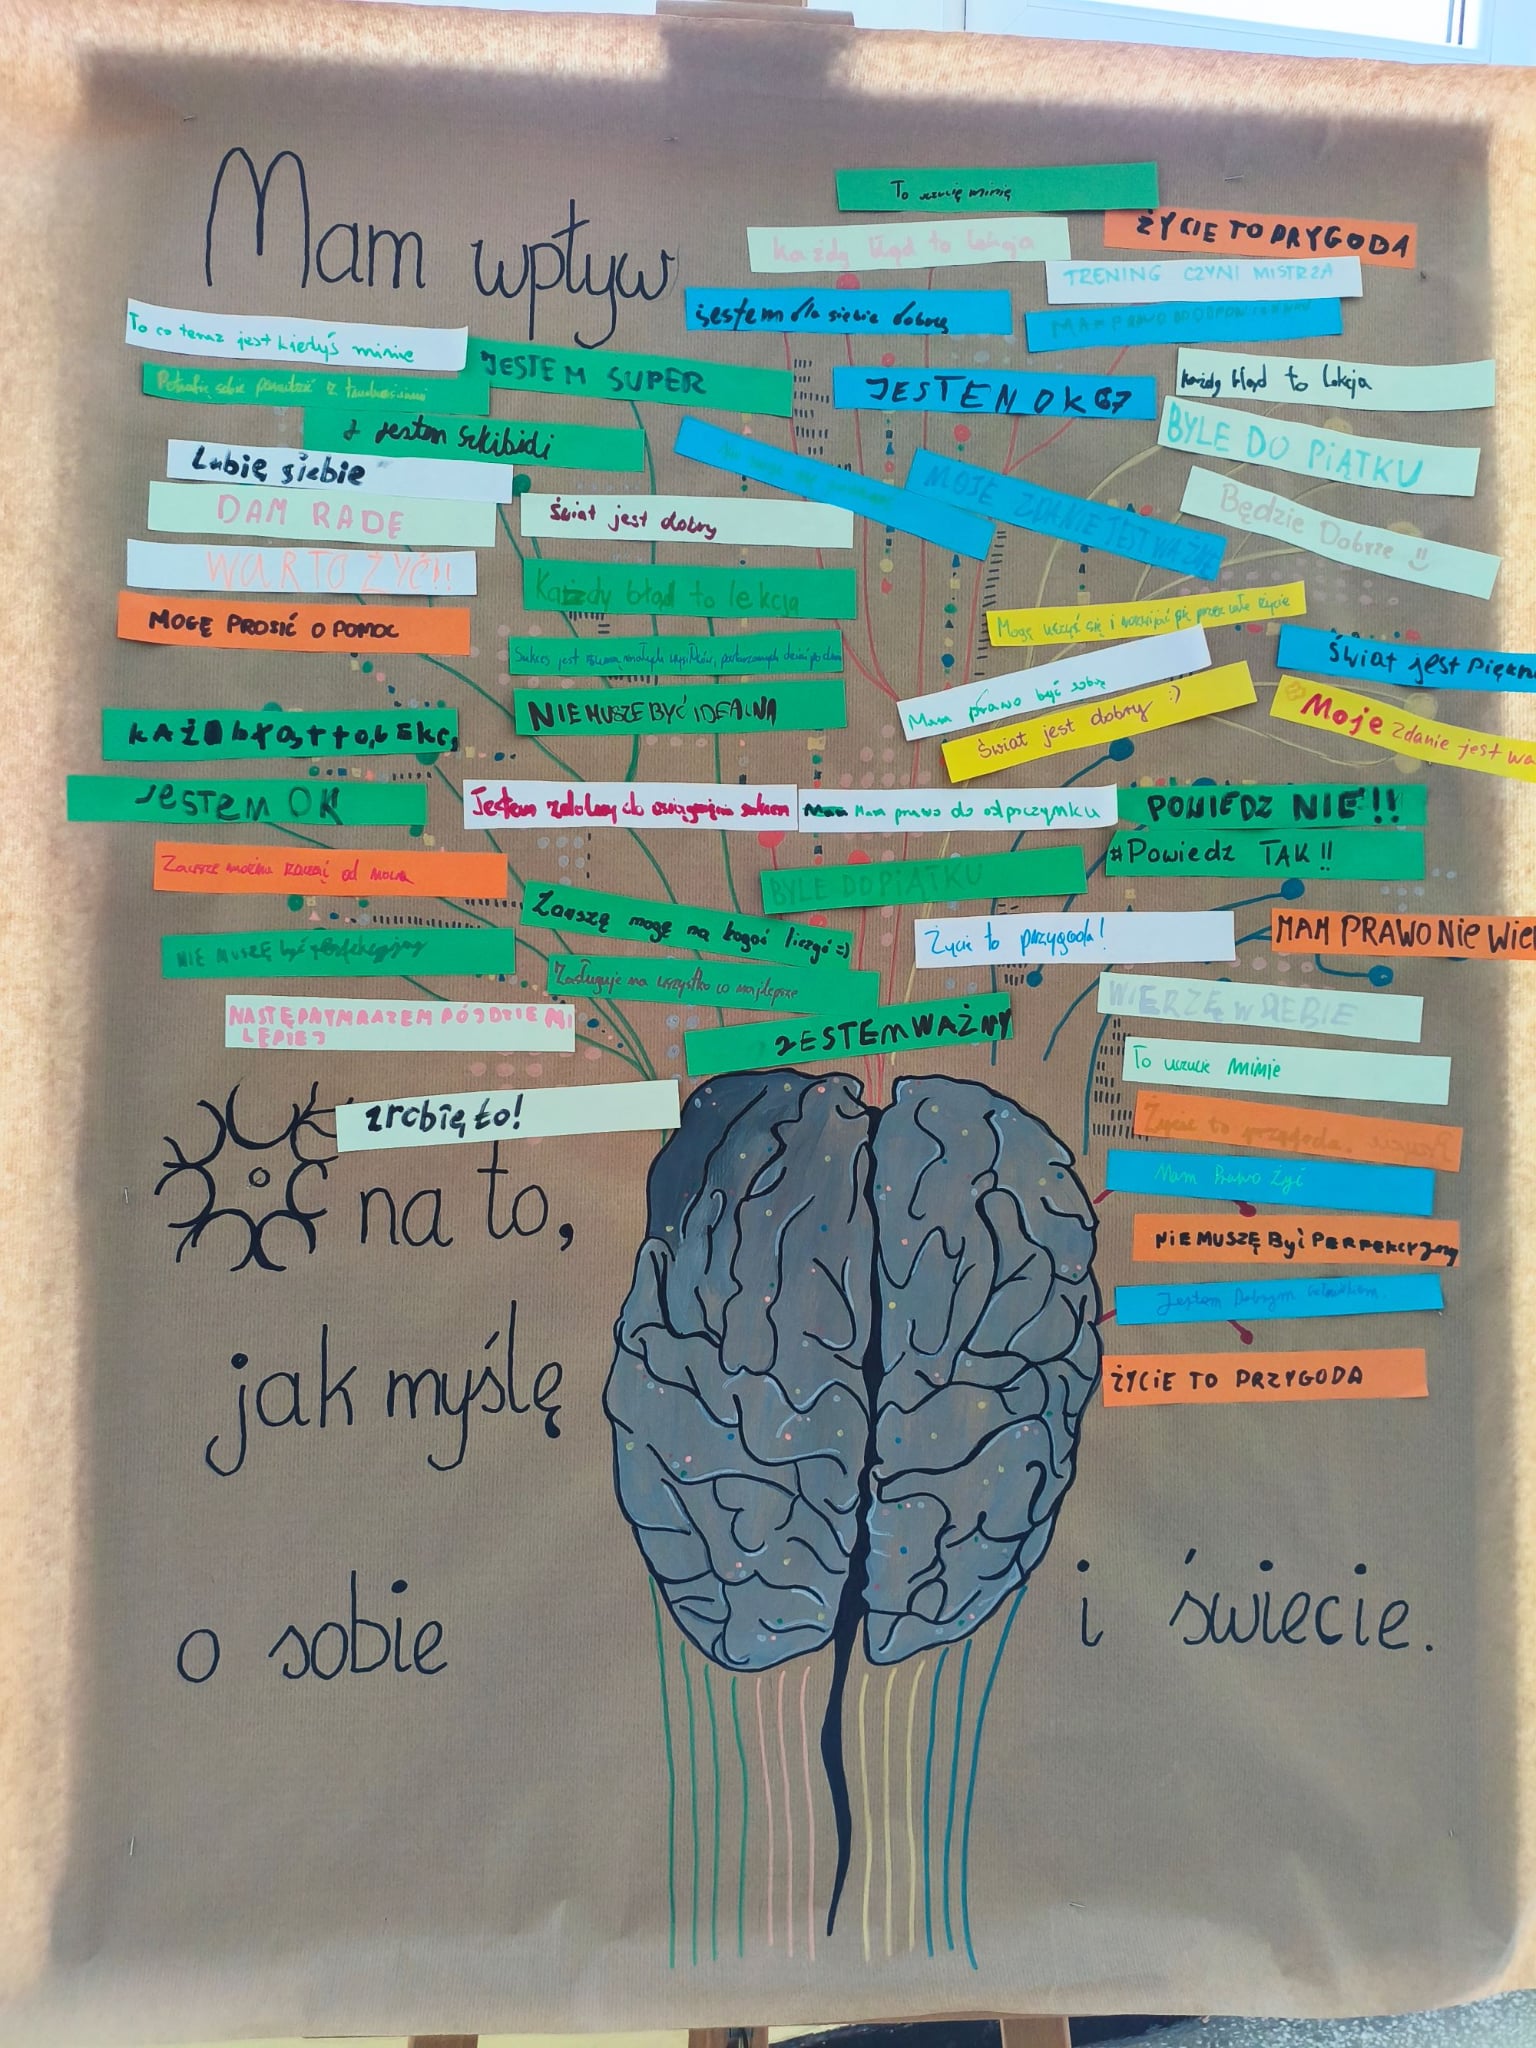 Mam wpływ
na to,
jak myślę
o sobie
i świecie.
To uczucie minie
Każdy błąd to lekcja
ŻYCIE TO PRYGODA
TRENING CZYNI MISTRZA
jestem dla siebie dobrą
MAM PRAWO DO ODPOCZYNKU
To co teraz jest kiedyś minie
JESTEM SUPER
Potrafię sobie poradzić z trudnościami
JESTEN OK 67
każdy błąd to lekcja
BYLE DO PIĄTKU
jestem Skibidi
Lubię siebie
MOJE ZDANIE JEST WAŻNE
Będzie Dobrze !!
DAM RADĘ
Świat jest dobry
WARTO ŻYĆ!!
Każdy błąd to lekcja
MOGĘ PROSIĆ O POMOC
Mogę uczyć się i rozwijać się przez całe życie
Sukces jest sumą małych wysiłków, powtarzanych dzień po dniu
Świat jest piękn
Mam prawo być sobą
Świat jest dobry :)
NIE MUSZE BYĆ IDEALNA
Moje zdanie jest wa
JESTEM OK
Jestem zdolny do osiągnięcia sukcesu
Mam prawo do odpoczynku
POWIEDZ NIE!!
#Powiedz TAK!!
Zawsze można zacząć od nowa
BYLE DO PIĄTKU
Zawszę mogę na kogoś liczyć =)
Życie to przygoda!
MAM PRAWO NIE WIE
NIE MUSZĘ być perfekcyjny
Zasługuje na wszystko co najlepsze
WIERZĘ W SIEBIE
NASTĘPNYM RAZEM PÓJDZIE MI
LEPIEJ
JESTEM WAŻNY
To uczucie minie
zrobię to!
Życie to przygoda.
Mam Prawo Żyć
NIE MUSZĘ Być PERFEKCYJNY
Jestem Dobrym człowiekiem.
ŻYCIE TO PRZYGODA